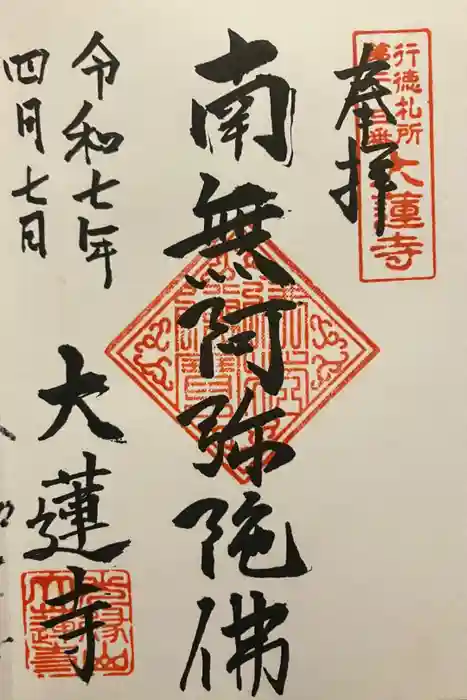 奉拝
行徳札所
大蓮寺
南無阿弥陀佛
令和七年
四月七日
大蓮寺